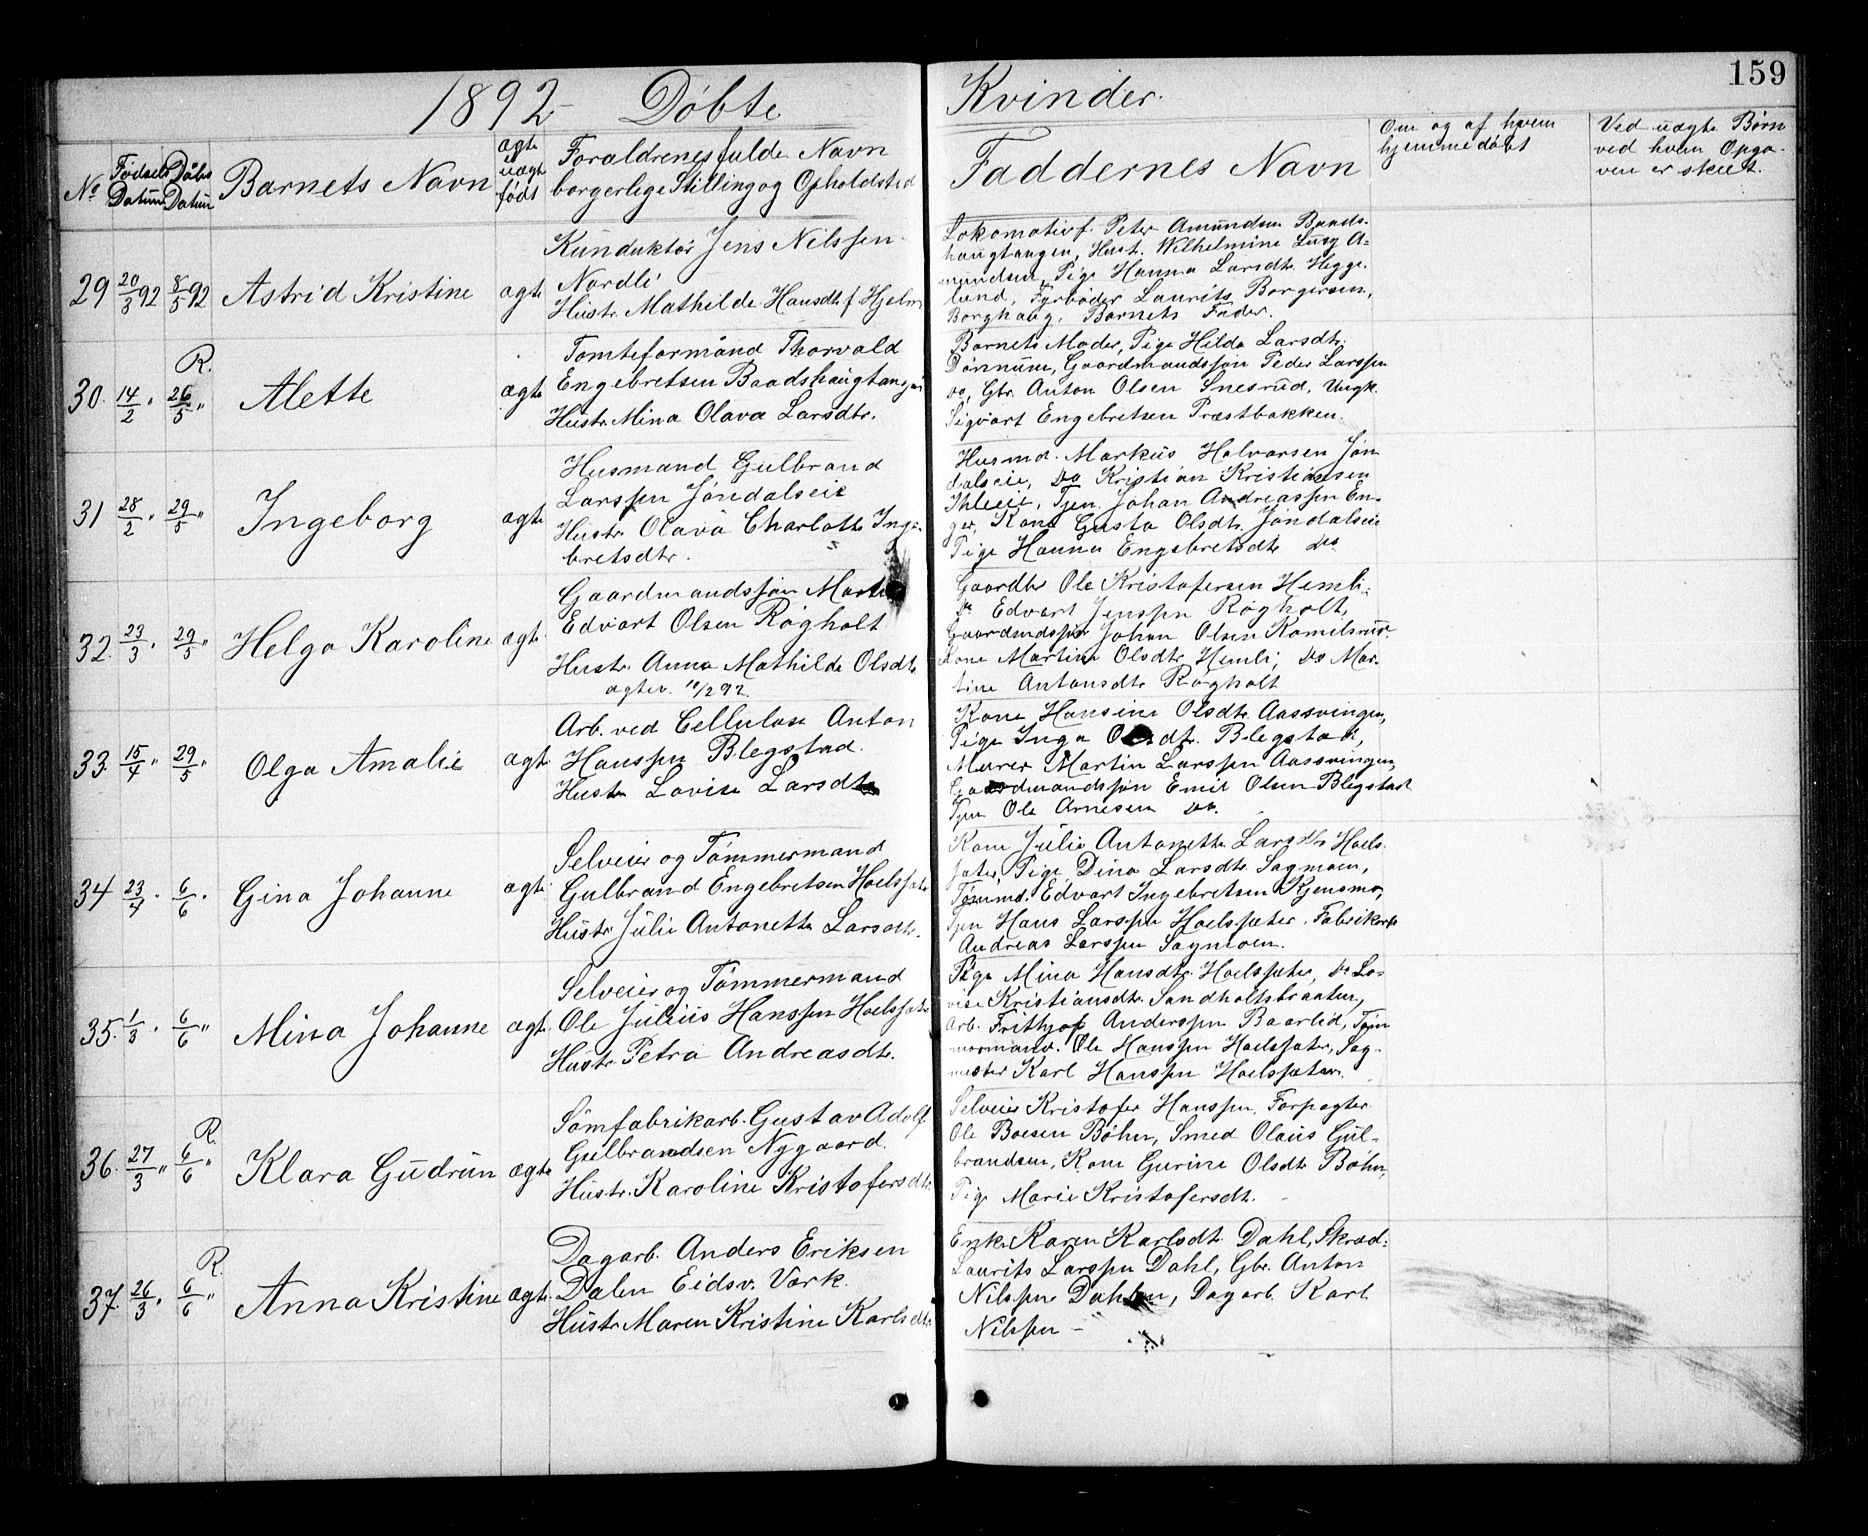 159
1892 Døbte Kvinder.
No Fødsels Datum Døbs Datum Barnets Navn ægte uægte født Forældrenes fulde Navn borgerlige Stilling og Opholdsted Faddernes Navn Om og af hvem hjemmedøbt Ved uægte Børn ved hvem Opga- ven er skeet.
29 20/3 92 8/5 92 Astrid Kristine ægte
Kunduktør Jens Nilssen
Nordli
Hustr. Mathilde Hansdt. f. Hjelm
Lokomotivf. Peter Amundsen Baads-
haugtangen, Hust. Wilhelmine Lusy A-
mundsen, Pige Hanna Larsdt. Hegge-
lund, Fyrbøder Laurits Borgersen,
Borghaug, Barnets Fader.
30. 14/2 " R. 26/5 " Alette ægte
Tomteformand Thorvald
Engebretsen Baadshaugtangen
Hustr. Mina Olava Larsdtr.
Barnets Moder, Pige Hilda Larsdtr.
Dønnum, Gaardmandssøn Peder Larssen
do, Gbr. Anton Olsen Snesrud, Ungk.
Sigvart Engebretsen Præstbakken.
31 28/2 " 29/5 " Ingeborg ægte
Husmand Gulbrand
Larssen Jøndalseie
Hustr. Olava Charlotte Inge-
bretsdtr.
Husmd. Markus Halvorsen Jøn-
dalseie, do Kristian Kristiansen
Ihleeie, Tjen. Johan Andreassen En-
ger, Kone Gusta Olsdt. Jøndalseie
Pige Hanna Engebretsdt. do
32. 23/3 " 29/5 " Helga Karoline ægte
Gaardmandssøn Martin
Edvart Olsen Røgholt
Hustr. Anna Mathilde Olsdt.
ægtev. 10/2 92.
Gaardbr. Ole Kristofersen Hemli,
do Edvart Jenssen Røgholt,
Gaardmdssøn Johan Olsen Komelsrud,
Kone Martine Olsdt. Hemli, do Mar-
tine Antonsdt. Røgholt
33. 15/4 " 29/5 " Olga Amalie ægte
Arb. ved Cellulose Anton
Hanssen Blegstad.
Hustr. Lovise Larsdtr.
Kone Hansine Olsdt. Aassvingen,
Pige Inga Olsdt. Blegstad,
Murer Martin Larssen Aassvingen,
Gaardmandssøn Emil Olsen Blegstad
Tjen Ole Arnesen do.
34 23/4 " 6/6 " Gina Johanne ægte
Selveier og Tømmermand
Gulbrand Engebretsen Hoelssæter
Hustr. Julie Antonette Larsdtr.
Kone Julie Antonette Larsdtr. Hoels-
sæter, Pige Dina Larsdt. Sagmoen,
Tømmd. Edvart Ingebretsen Kjensmo,
Tjen Hans Larssen Hoelssæter, Fabrikarb.
Andreas Larssen Sagmoen.
35. 1/3 " 6/6 " Mina Johanne ægte
Selveier og Tømmermand
Ole Julius Hanssen Hoelssæter
Hustr. Petra Andreasdt.
Pige Mina Hansdt. Hoelssæter, do Lo-
vise Kristiansdt. Sandholtsbraaten,
Arb. Frithjof Anderssen Baarlid, Tøm-
mermand. Ole Hanssen Hoelssæter, Sag-
mester Karl Hanssen Hoelssæter.
36. 27/3 " R. 6/6 " Klara Gudrun ægte
Sømfabrikarb. Gustav Adolf
Gulbrandsen Nygaard
Hustr. Karoline Kristofersdt.
Selveier Kristofer Hanssen, Forpagter
Ole Boesen Bøhn, Smed Olaus Gul-
brandsen, Kone Gurine Olsdt. Bøhn,
Pige Marie Kristofersdt.
37. 26/3 " R. 6/6 " Anna Kristine ægte
Dagarb. Anders Eriksen
Dalen Eidsv. Værk.
Hustr. Maren Kristine Karlsdt.
Enke Karen Karlsdt. Dahl, Skræd.
Laurits Larssen Dahl, Gbr. Anton
Nilssen Dahlen, Dagarb. Karl
Nilssen -